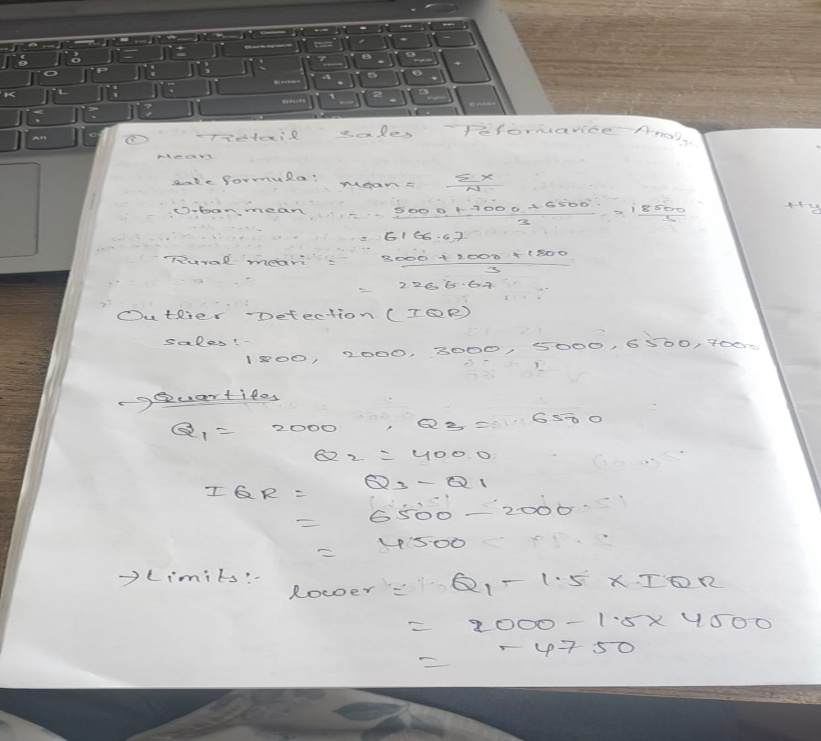 Retail Sales Peformance Analy
Mean
sale formula: Mean = Σx / N
Urban mean = 5000 + 7000 + 6500 / 3 = 18500 / 3
= 6166.67
Rural mean = 3000 + 2000 + 1800 / 3
= 2266.67
Outlier Detection (IQR)
Sales:-
1800, 2000, 3000, 5000, 6500, 7000
→ Quartiles
Q1 = 2000 , Q3 = 6500
Q2 = 4000
IQR = Q3 - Q1
= 6500 - 2000
= 4500
→ Limits:-
lower = Q1 - 1.5 x IQR
= 2000 - 1.5 x 4500
= - 4750
Hy